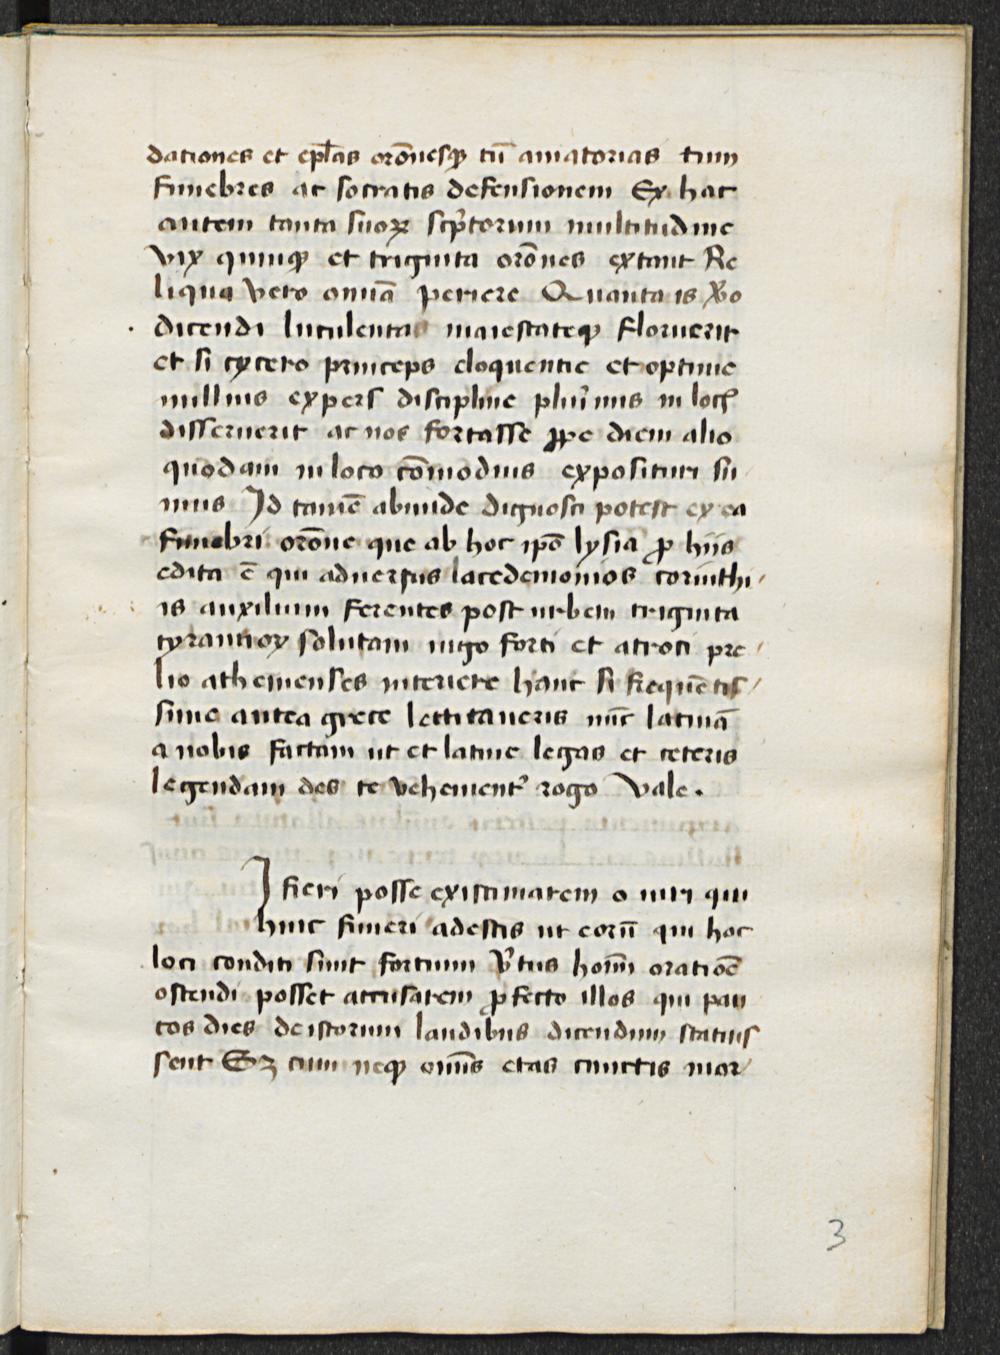 dationes et ep̃las orõnesqꝫ tũ amatorias tum
funebres ac socratis defensionem Ex hac
autem tanta suoꝝ scp̃torum multitudine
vix quinqꝫ et triginta orõnes extant Re
liqua vero omã periere Quanta is x̃o
dicendi luculenta maiestateqꝫ floruerit
et si cycero princeps eloquentie et optime
nullius expers discipline plurĩmis in locꝭ
disseruerit ac nos fortasse ꝓpe diem alio
quodam in loco cõmodius exposituri su
mus Id tamẽ abunde dignosci potest ex ea
funebri orõne que ab hoc ip̃o lysia ꝓ hiis
edita ẽ qui aduersus lacedemonios corinthi
is auxilium ferentes post urbem triginta
tyrannoꝝ solutam iugo forti et atroci pre
lio athenienses interiere hanc si frequẽtis
sime antea grece lectitaueris nũc latinã
a nobis factam ut et latine legas et ceteris
legendam des te vehement̃ rogo Vale .
I fieri posse existimarem o uiri qui
huic funeri adestis ut eorũ qui hoc
loci conditi sunt fortium v̓tus homĩ oratiõe
ostendi posset accusarem ꝓfecto illos qui pau
cos dies de istorum laudibus dicendum statuis
sent Sꝫ cum neqꝫ omĩs etas cunctis mor
3